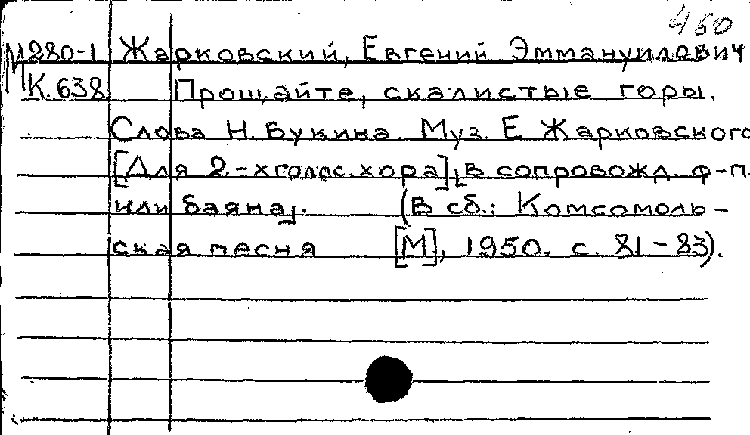 450
М280-1 Жарковский, Евгений Эммануилович
К.638 Прощайте, скалистые горы.
Слова Н. Букина. Муз. Е. Жарковского
[Для 2-х голос. хора], [в сопровожд. ф-п.
или баяна].. (В сб.: Комсомоль-
ская песня [М], 1950. с. 81-83).